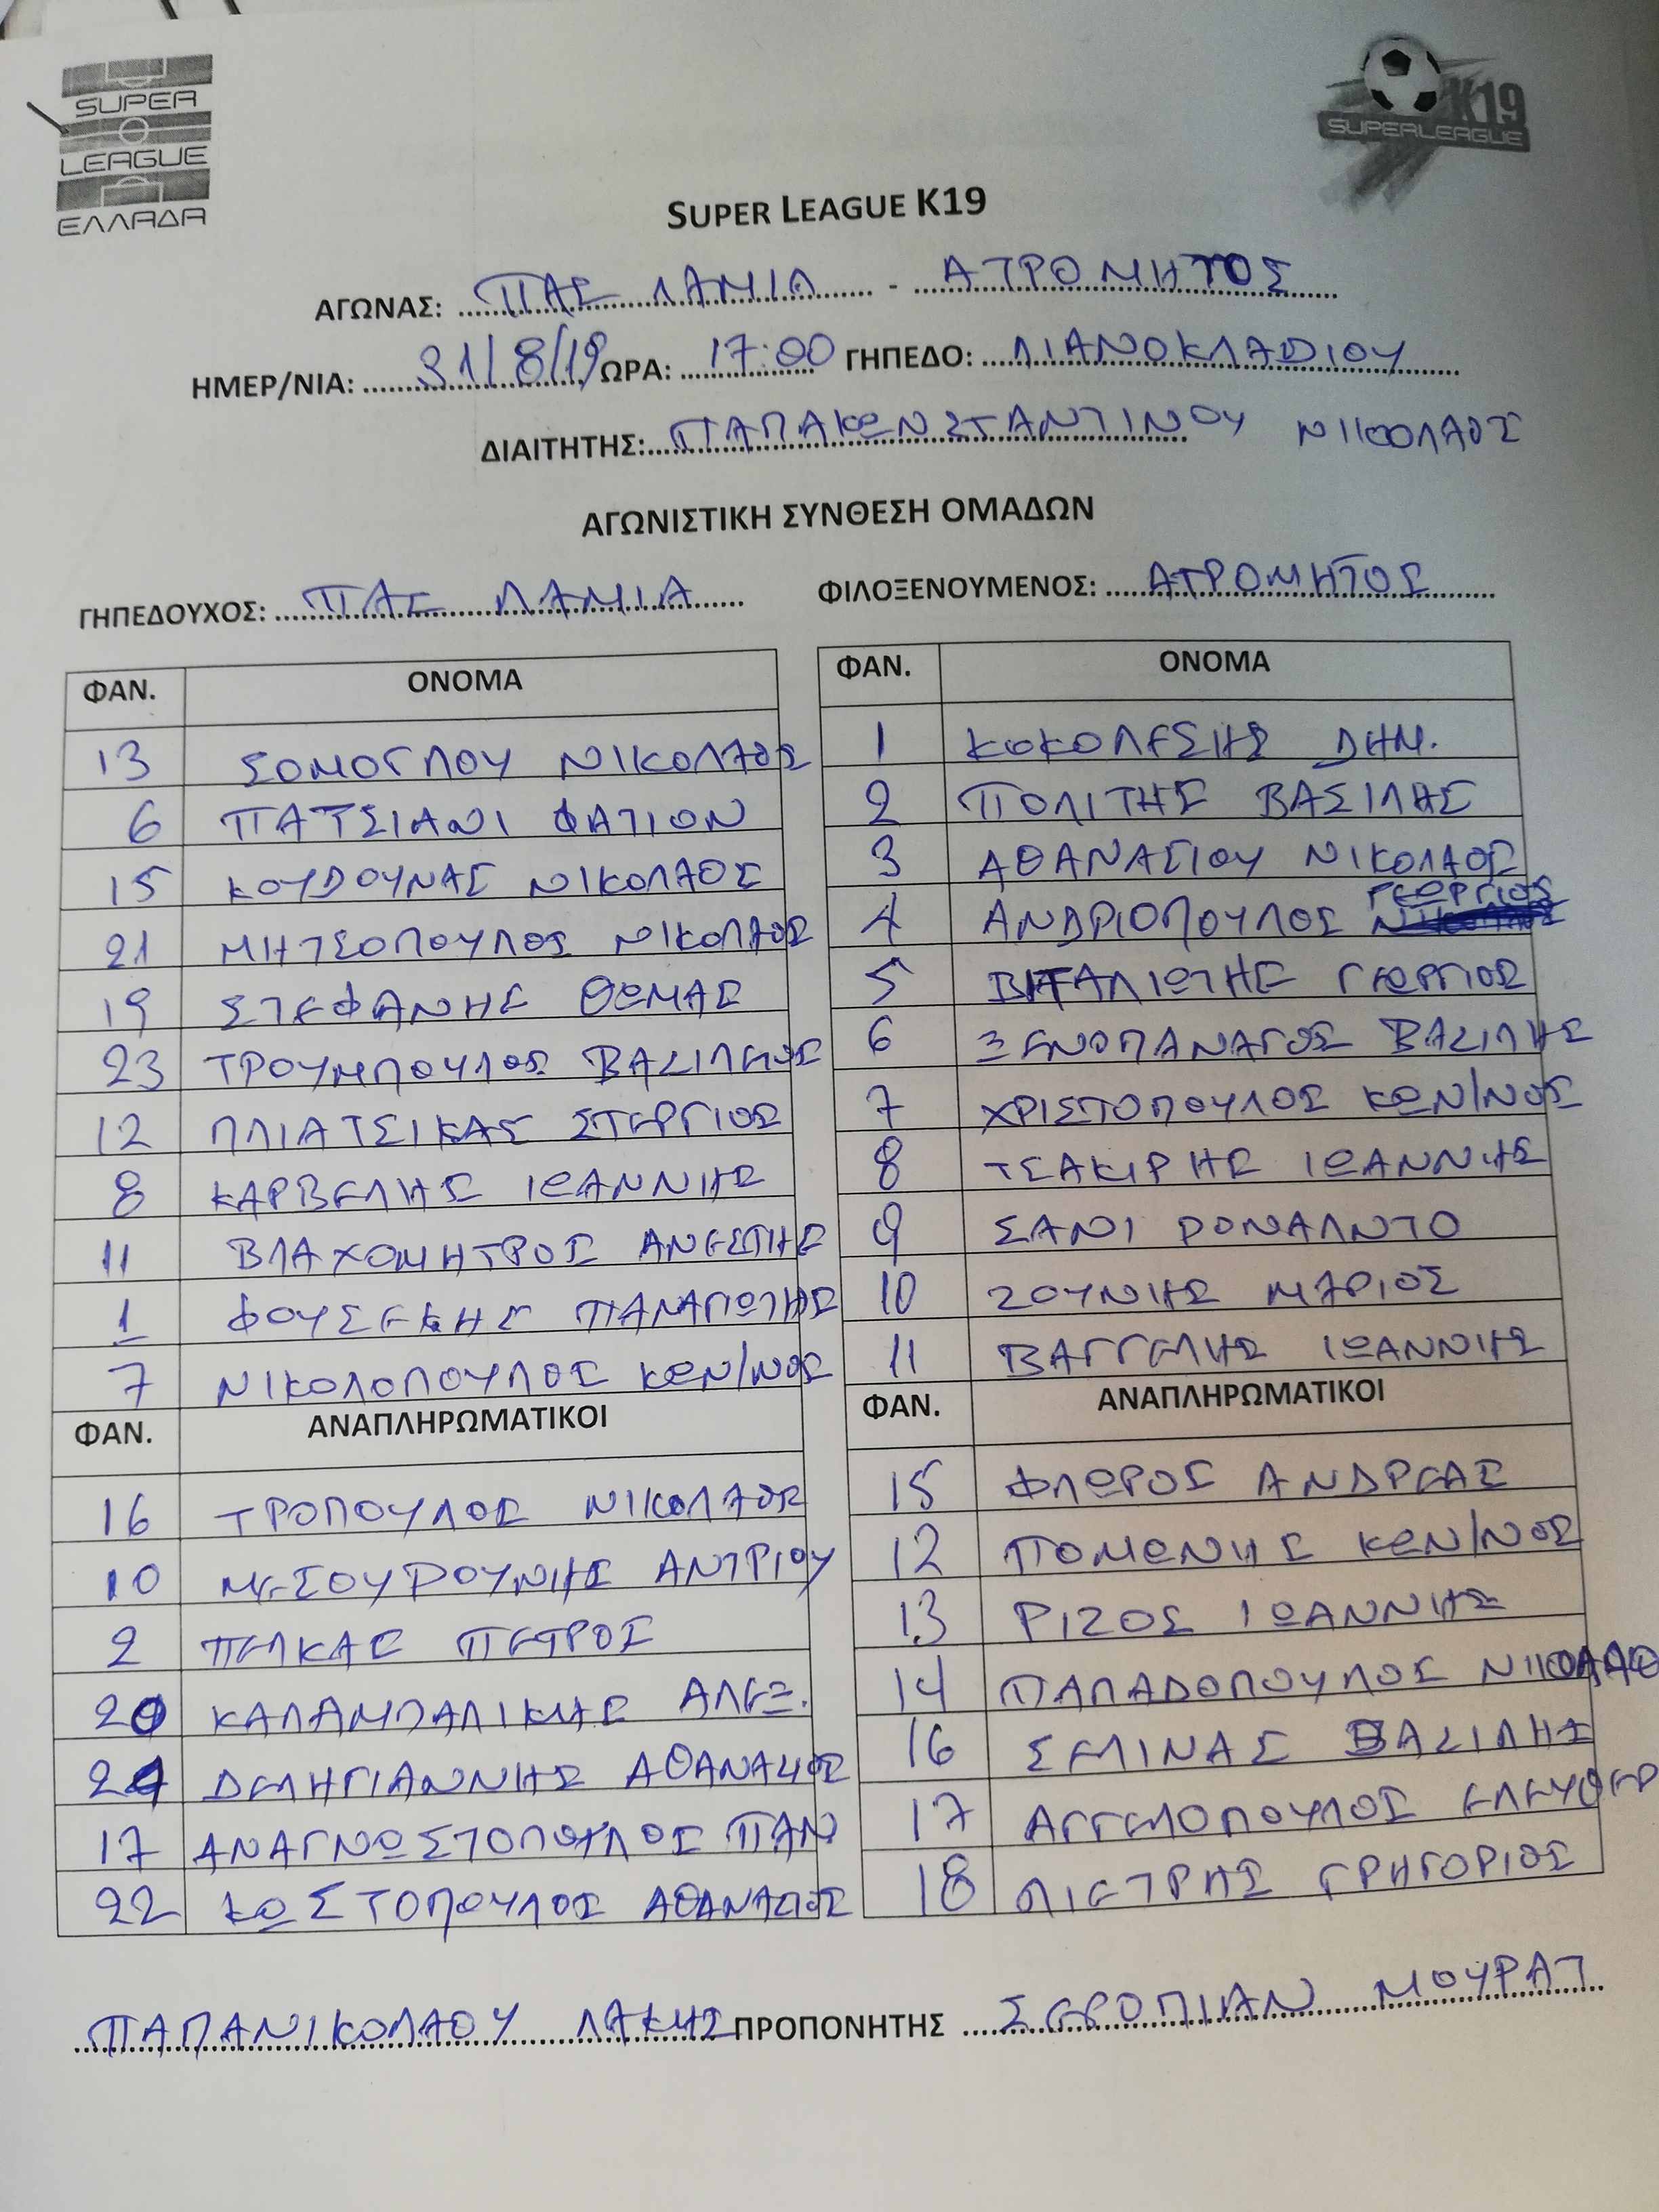 SUPER
LEAGUE
ΕΛΛΑΔΑ
K19
SUPERLEAGUE
SUPER LEAGUE K19
ΑΓΩΝΑΣ: ΠΑΣ ΛΑΜΙΑ - ΑΤΡΟΜΗΤΟΣ
ΗΜΕΡ/ΝΙΑ: 31/8/19 ΩΡΑ: 17:00 ΓΗΠΕΔΟ: ΛΙΑΝΟΚΛΑΔΙΟΥ
ΔΙΑΙΤΗΤΗΣ: ΠΑΠΑΚΩΝΣΤΑΝΤΙΝΟΥ ΝΙΚΟΛΑΟΣ
ΑΓΩΝΙΣΤΙΚΗ ΣΥΝΘΕΣΗ ΟΜΑΔΩΝ
ΓΗΠΕΔΟΥΧΟΣ: ΠΑΣ ΛΑΜΙΑ
ΦΑΝ. ΟΝΟΜΑ
13 ΣΟΜΟΓΛΟΥ ΝΙΚΟΛΑΟΣ
6 ΠΑΤΣΙΑΝΙ ΦΑΤΙΟΝ
15 ΚΟΥΔΟΥΝΑΣ ΝΙΚΟΛΑΟΣ
21 ΜΗΤΣΟΠΟΥΛΟΣ ΝΙΚΟΛΑΟΣ
19 ΣΤΕΦΑΝΗΣ ΘΩΜΑΣ
23 ΤΡΟΥΜΠΟΥΛΟΣ ΒΑΣΙΛΕΙΟΣ
12 ΠΛΙΑΤΣΙΚΑΣ ΣΤΕΡΓΙΟΣ
8 ΚΑΡΒΕΛΗΣ ΙΩΑΝΝΗΣ
11 ΒΛΑΧΟΜΗΤΡΟΣ ΑΝΕΣΤΗΣ
1 ΦΟΥΣΕΚΗΣ ΠΑΝΑΓΙΩΤΗΣ
7 ΝΙΚΟΛΟΠΟΥΛΟΣ ΚΩΝ/ΝΟΣ
ΦΑΝ. ΑΝΑΠΛΗΡΩΜΑΤΙΚΟΙ
16 ΤΡΟΠΟΥΛΟΣ ΝΙΚΟΛΑΟΣ
10 ΜΕΣΟΥΡΟΥΝΗΣ ΑΝΤΡΙΟΥ
2 ΠΕΛΚΑΣ ΠΕΤΡΟΣ
20 ΚΑΛΑΜΠΑΛΙΚΗΣ ΑΛΕΞ.
ΔΕΛΗΓΙΑΝΝΗΣ ΑΘΑΝΑΣΙΟΣ
17 ΑΝΑΓΝΩΣΤΟΠΟΥΛΟΣ ΠΑΝ
22 ΚΩΣΤΟΠΟΥΛΟΣ ΑΘΑΝΑΣΙΟΣ
ΦΙΛΟΞΕΝΟΥΜΕΝΟΣ: ΑΤΡΟΜΗΤΟΣ
ΦΑΝ. ΟΝΟΜΑ
1 ΚΟΚΟΛΕΣΗΣ ΔΗΜ.
2 ΠΟΛΙΤΗΣ ΒΑΣΙΛΗΣ
3 ΑΘΑΝΑΣΙΟΥ ΝΙΚΟΛΑΟΣ
4 ΑΝΔΡΙΟΠΟΥΛΟΣ ΓΕΩΡΓΙΟΣ
5 ΒΙΤΑΛΙΩΤΗΣ ΓΕΩΡΓΙΟΣ
6 ΞΕΝΟΠΑΝΑΓΟΣ ΒΑΣΙΛΗΣ
7 ΧΡΙΣΤΟΠΟΥΛΟΣ ΚΩΝ/ΝΟΣ
8 ΤΣΑΚΙΡΗΣ ΙΩΑΝΝΗΣ
9 ΣΑΝΙ ΡΟΝΑΛΝΤΟ
10 ΖΟΥΝΗΣ ΜΑΡΙΟΣ
11 ΒΑΓΓΕΛΗΣ ΙΩΑΝΝΗΣ
ΦΑΝ. ΑΝΑΠΛΗΡΩΜΑΤΙΚΟΙ
15 ΦΛΩΡΟΣ ΑΝΔΡΕΑΣ
12 ΠΟΜΩΝΗΣ ΚΩΝ/ΝΟΣ
13 ΡΙΖΟΣ ΙΩΑΝΝΗΣ
14 ΠΑΠΑΔΟΠΟΥΛΟΣ ΝΙΚΟΛΑΟ
16 ΣΕΛΙΝΑΣ ΒΑΣΙΛΗΣ
17 ΑΓΓΕΛΟΠΟΥΛΟΣ ΕΛΕΥΘΕΡ
18 ΠΙΕΤΡΗΣ ΓΡΗΓΟΡΙΟΣ
ΠΑΠΑΝΙΚΟΛΑΟΥ ΛΑΚΗΣ ΠΡΟΠΟΝΗΤΗΣ ΣΕΡΟΠΙΑΝ ΜΟΥΡΑΤ